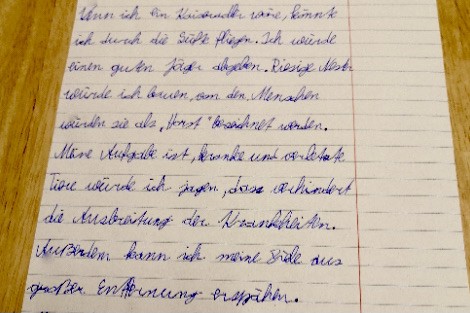 Wenn ich ein Kaiseradler wäre, könnte
ich durch die Lüfte fliegen. Ich würde
einen guten Jäger abgeben. Riesige Nester
würde ich bauen, von den Menschen
würden sie als „Horst" bezeichnet werden.
Meine Aufgabe ist, kranke und verletzte
Tiere würde ich jagen, das verhindert
die Ausbreitung der Krankheiten.
Außerdem kann ich meine Beute aus
großer Entfernung erspähen.